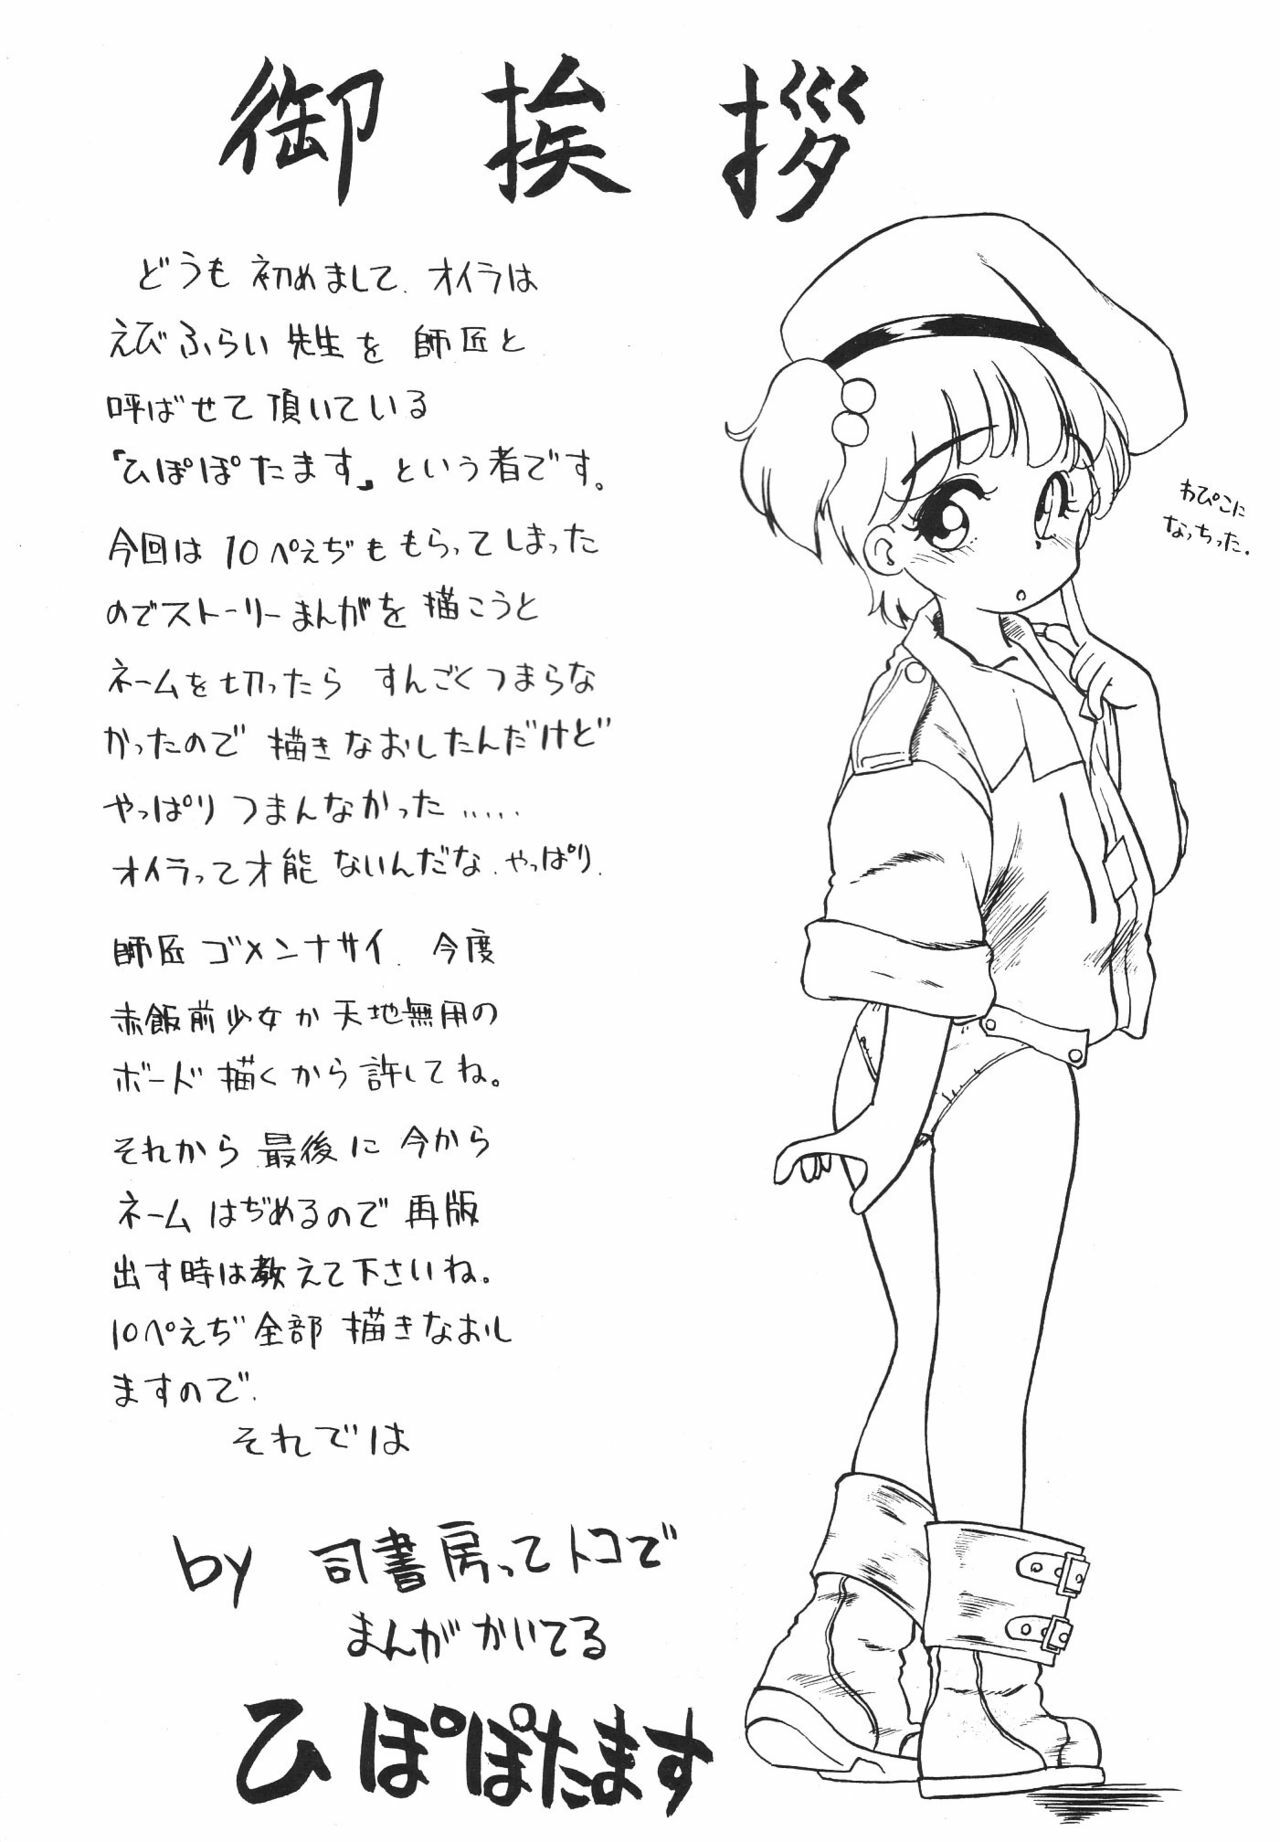 御挨拶
どうも 初めまして. オイラは
えびふらい 先生を 師匠と
呼ばせて 頂いている
『ひぽぽぽたます』という者です。
今回は 10ぺえぢも もらってしまった
のでストーリーまんがを 描こうと
ネームを 切ったら すんごくつまらな
かったので 描きなおしたんだけど
やっぱり つまんなかった.....
オイラって才能 ないんだな.やっぱり.
師匠 ゴメンナサイ. 今度
赤飯前少女か 天地無用の
ボード 描くから 許してね。
それから 最後に 今から
ネーム はぢめるので 再版
出す時は教えて下さいね。
10ぺえぢ 全部 描きなおし
ますので.
それでは
by 司書房ってトコで
まんが かいてる
ひぽぽたます
わぴこに
なっちった.